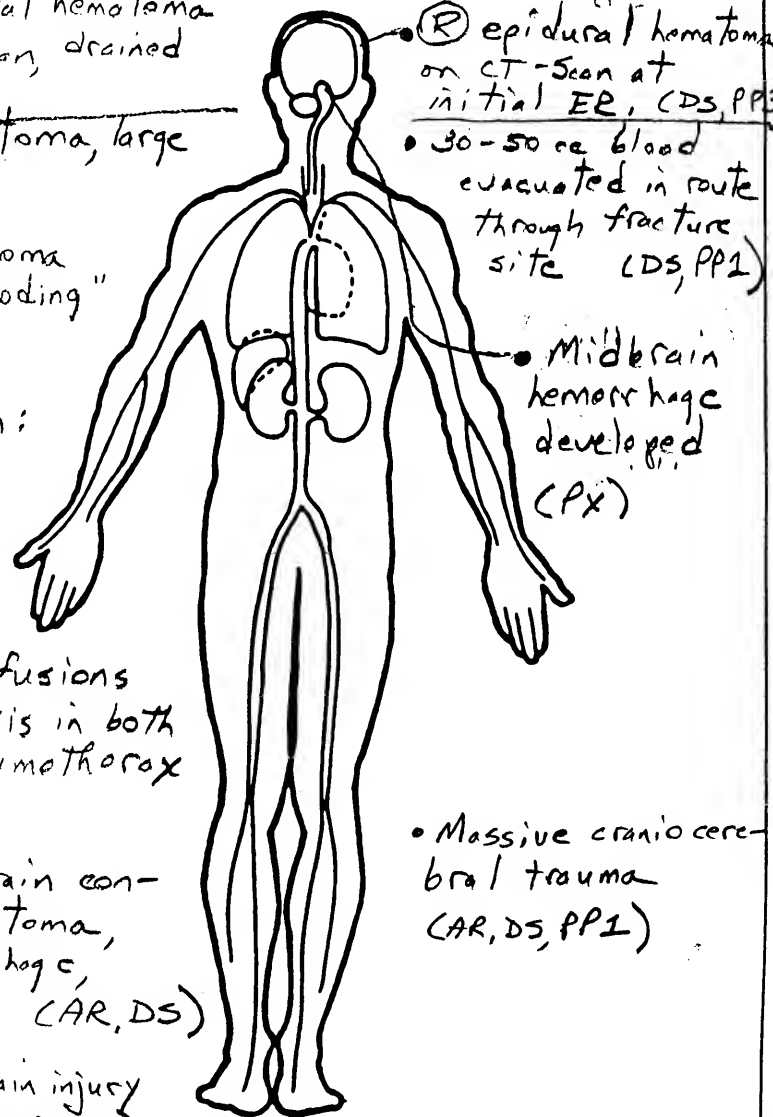 al hematoma
on, drained
toma, large
oma
oding"
n:
fusions
is in both
umothorax
ain con-
toma,
hage,
(AR, DS)
ain injury
• Ⓡ epidural hematoma
on CT-Scan at
initial ER, (DS, PP3
• 30-50 cc blood
evacuated in route
through fracture
site (DS, PP1)
• Midbrain
hemorrhage
developed
(PX)
• Massive craniocere-
bral trauma
(AR, DS, PP1)